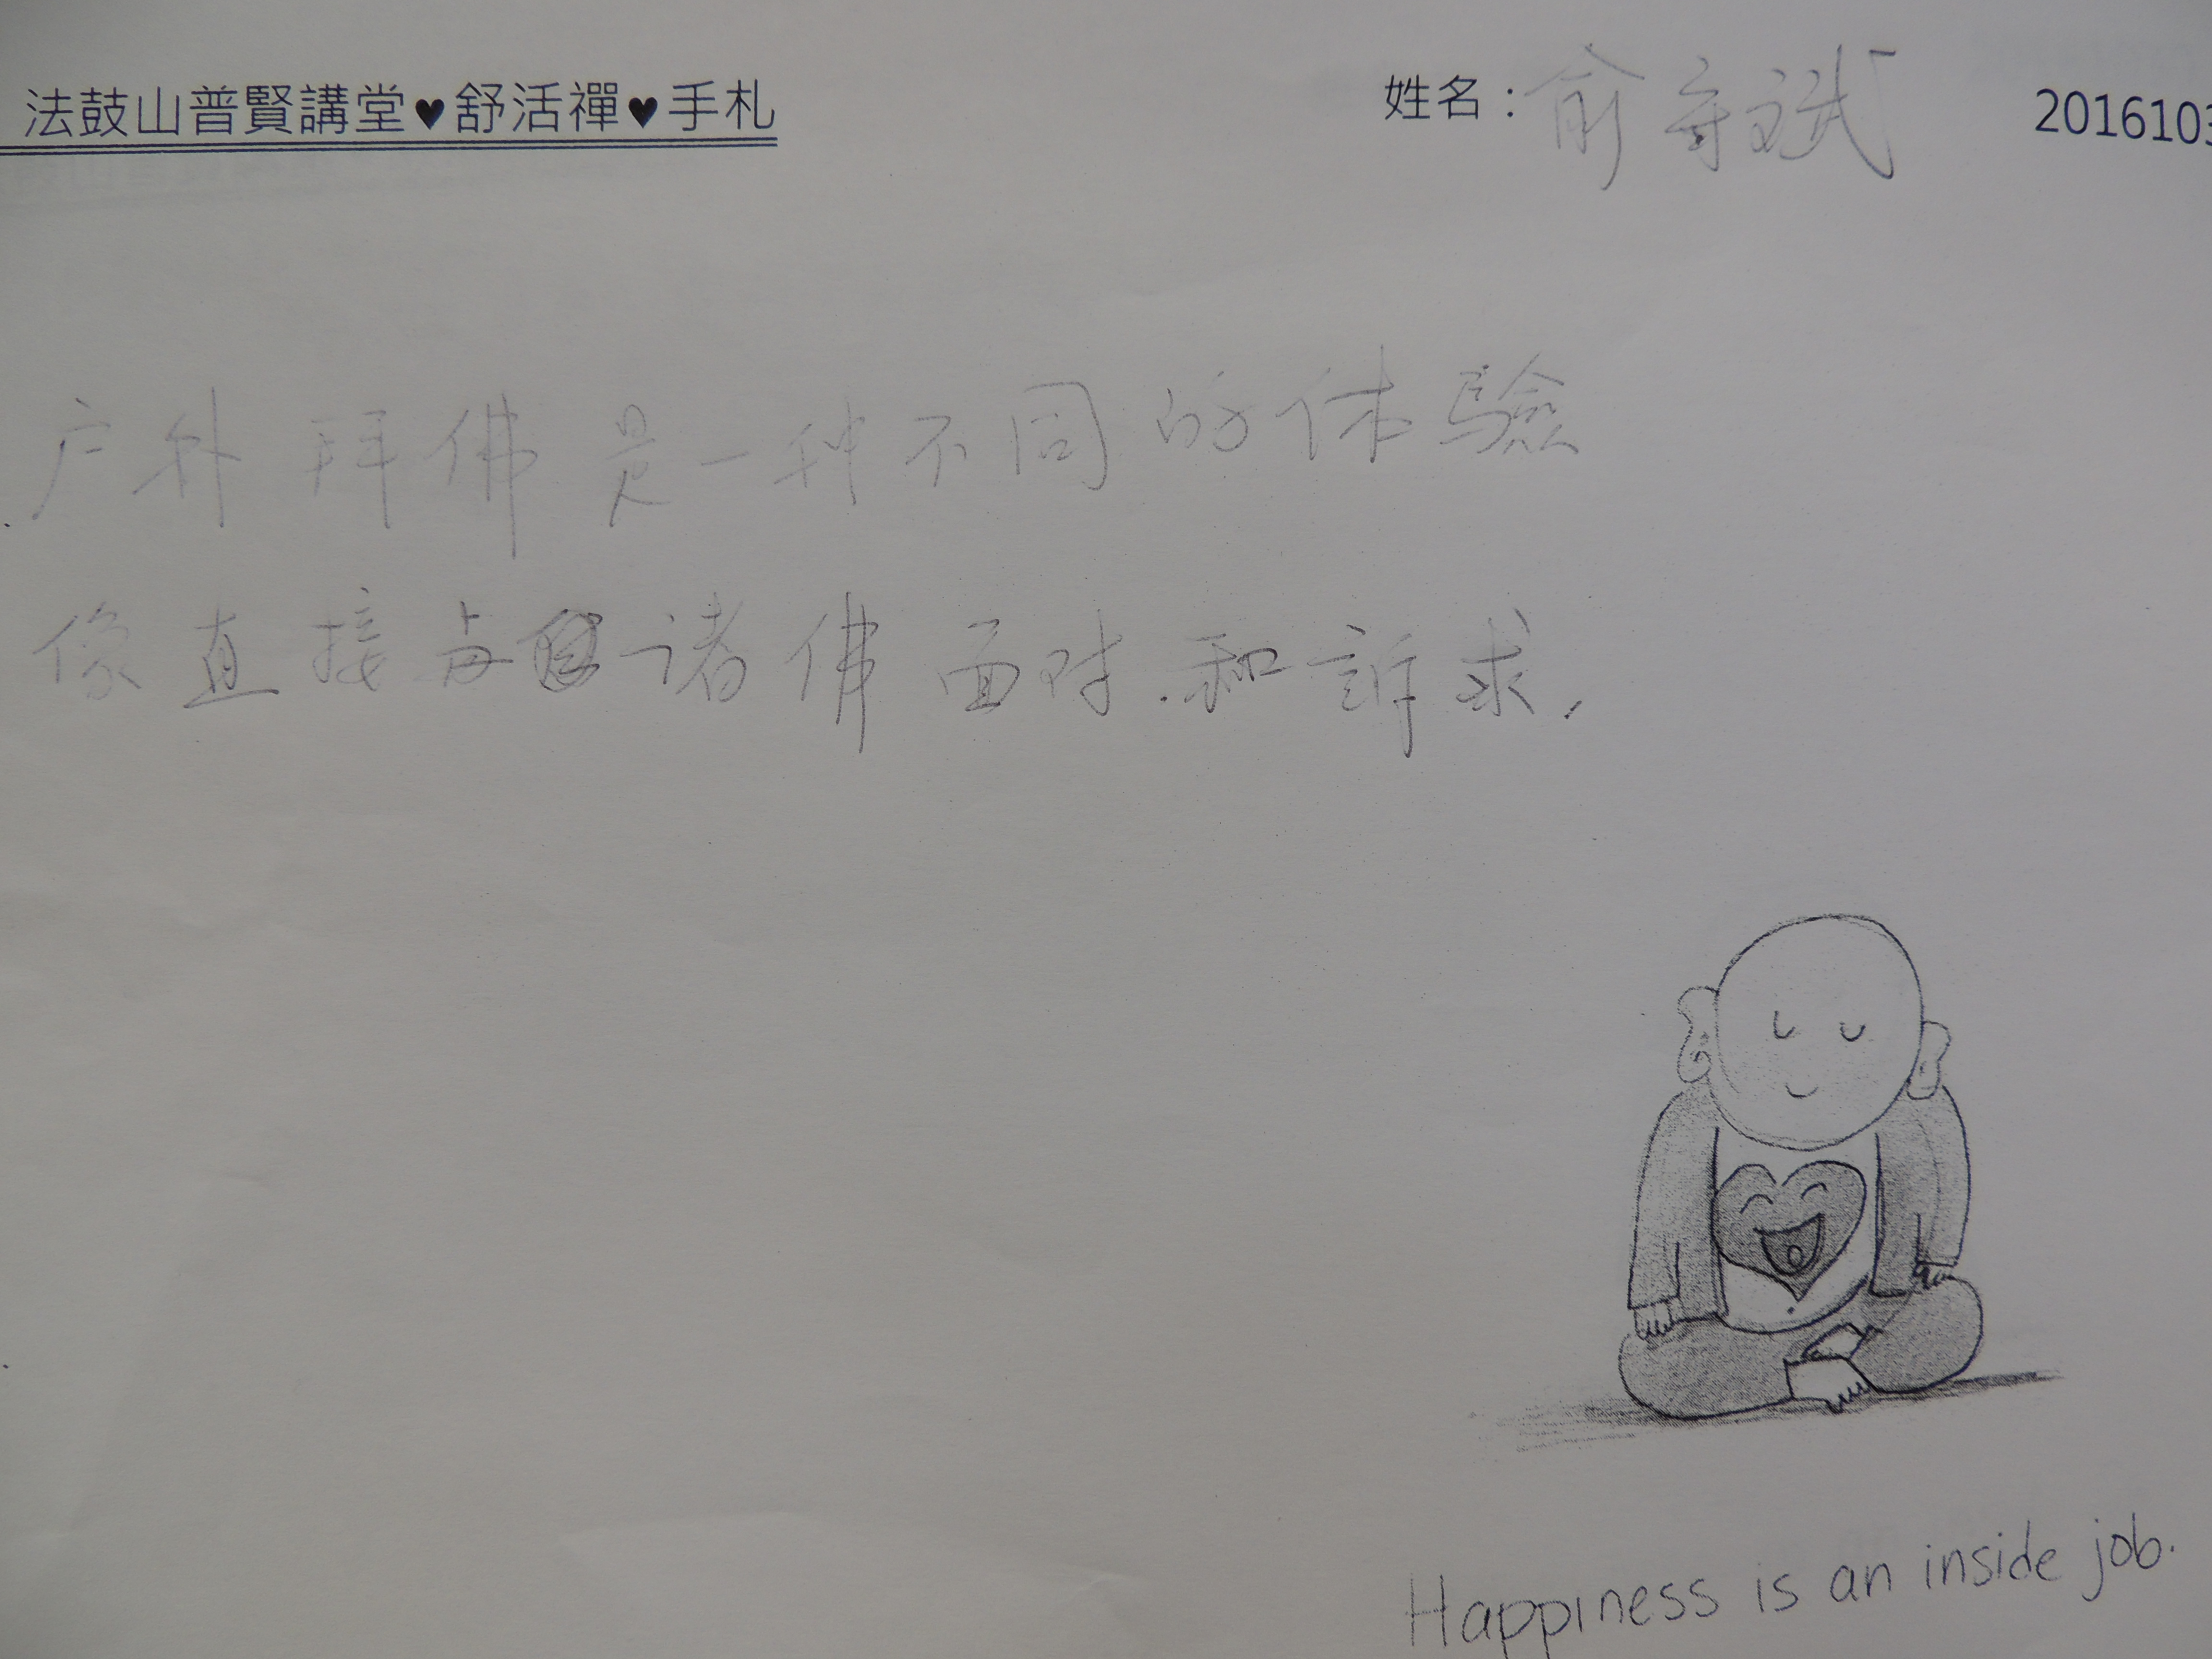 法鼓山普賢講堂♥舒活禪♥手札
姓名：俞 斌
2016103
户外拜佛是一种不同的体驗
像直接与诸佛面对.和訴求.
Happiness is an inside job.